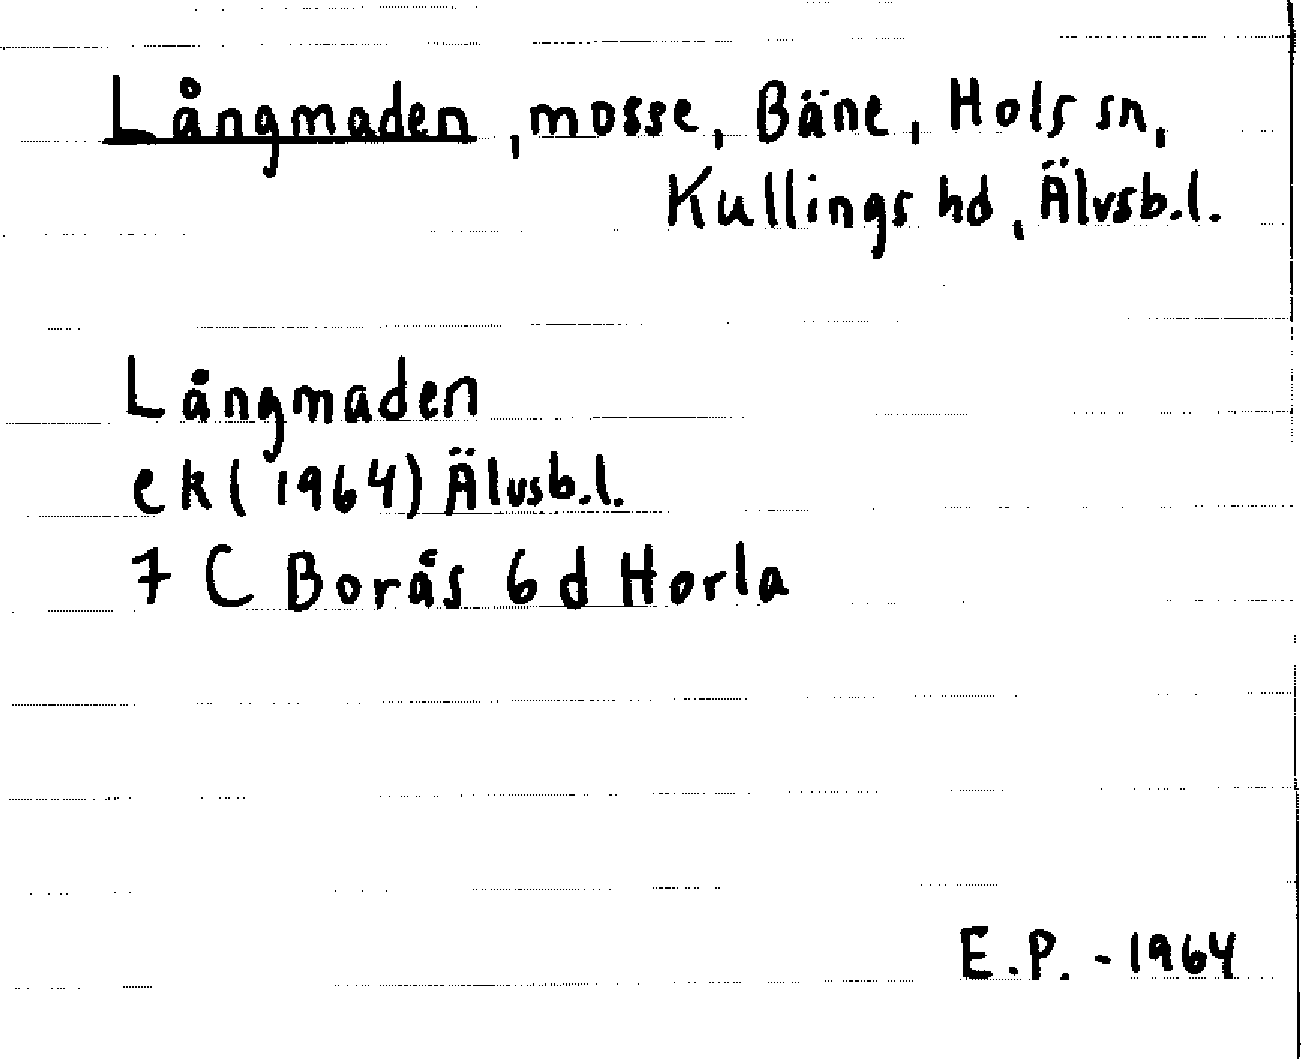 Långmaden, mosse, Bäne, Hols sn,
Kullings hd, Älvsb.l.
Långmaden
ek (1964) Älvsb.l.
7 C Borås 6 d Horla
E.P. - 1964